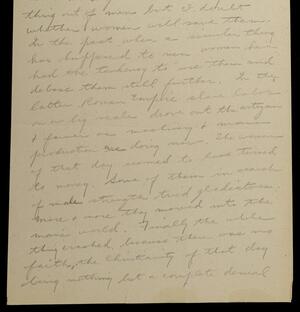 thing out of men but I doubt
whether women will save them.
In the past when a similar thing
has happened to men women have
had the tendency to use them and
debase them still further. In the
latter Roman Empire slave labor
on a big scale drove out the artizan
& farmer as machinery & mass
production are doing now. The women
of that day seemed to have turned
to money. Some of them in search
of male strength tried gladiators.
More & more they moved into the
man's world. Finally the whole
thing crashed, because there was no
faith, the Christianity of that day
being nothing but a complete denial